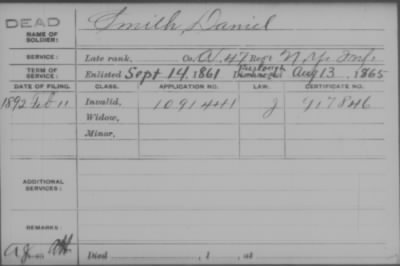 DEAD
Smith, Daniel
NAME OF SOLDIER:
SERVICE: Late rank, Co. A, 47 Reg't N.Y. Inf.
TERM OF SERVICE: Enlisted Sept 14, 1861 Discharged Aug 13, 1865
DATE OF FILING. CLASS. APPLICATION NO. LAW. CERTIFICATE NO.
1892 Feb 11 Invalid, 1091441 J 917846
Widow,
Minor,
ADDITIONAL SERVICES:
REMARKS:
Died , 1 , at